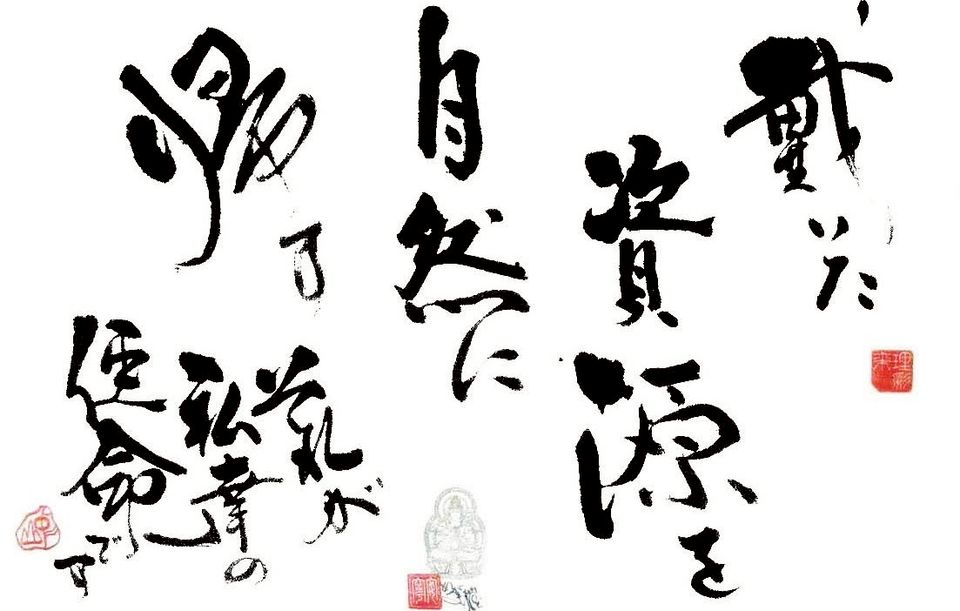 戴いた
資源を
自然に
帰す
それが
私達の
使命です